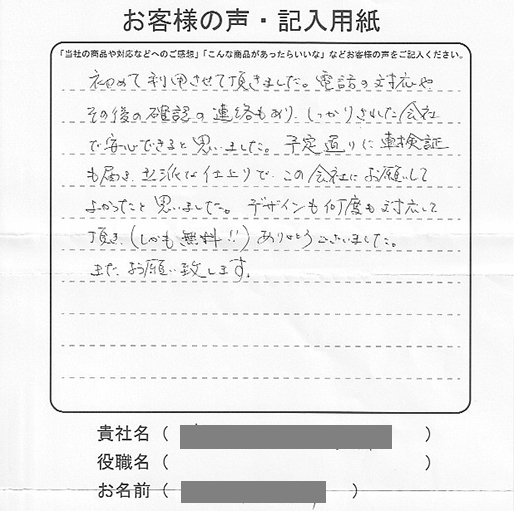 お客様の声・記入用紙
「当社の商品や対応などへのご感想」「こんな商品があったらいいな」などお客様の声をご記入ください。
初めて利用させて頂きました。電話の対応や
その後の確認の連絡もあり、しっかりされた会社
で安心できると思いました。予定通りに車検証
も届き、立派な仕上りで、この会社にお願いして
よかったと思いました。デザインも何度も対応して
頂き、(しかも無料!!)ありがとうございました。
また、お願い致します。
貴社名( )
役職名( )
お名前( )